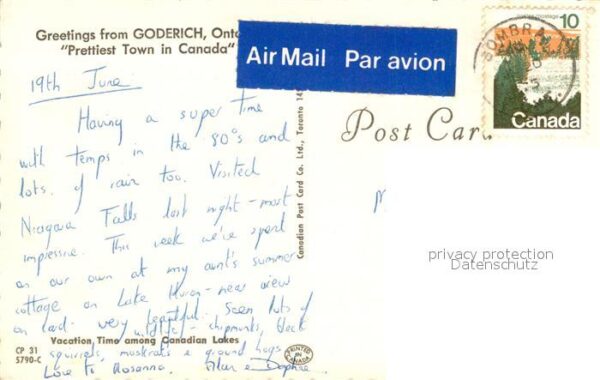 Greetings from GODERICH, Onta
"Prettiest Town in Canada"
Air Mail Par avion
10
SOMBRA
Canada
Post Card
Canadian Post Card Co. Ltd., Toronto 14
19th June
Having a super time
with temps in the 80's and
lots of rain too. Visited
Niagara Falls last night - most
impressive. This week we've spent
on our own at my aunt's summer
cottage on Lake Huron - near
on card. very beautiful. Seen lots of
wildlife - chipmunks, black
squirrels, muskrats & ground hogs.
Love to Rosanna. & Daphne.
Vacation Time among Canadian Lakes
CP 31
5790-C
PRINTED IN CANADA
privacy protection
Datenschutz